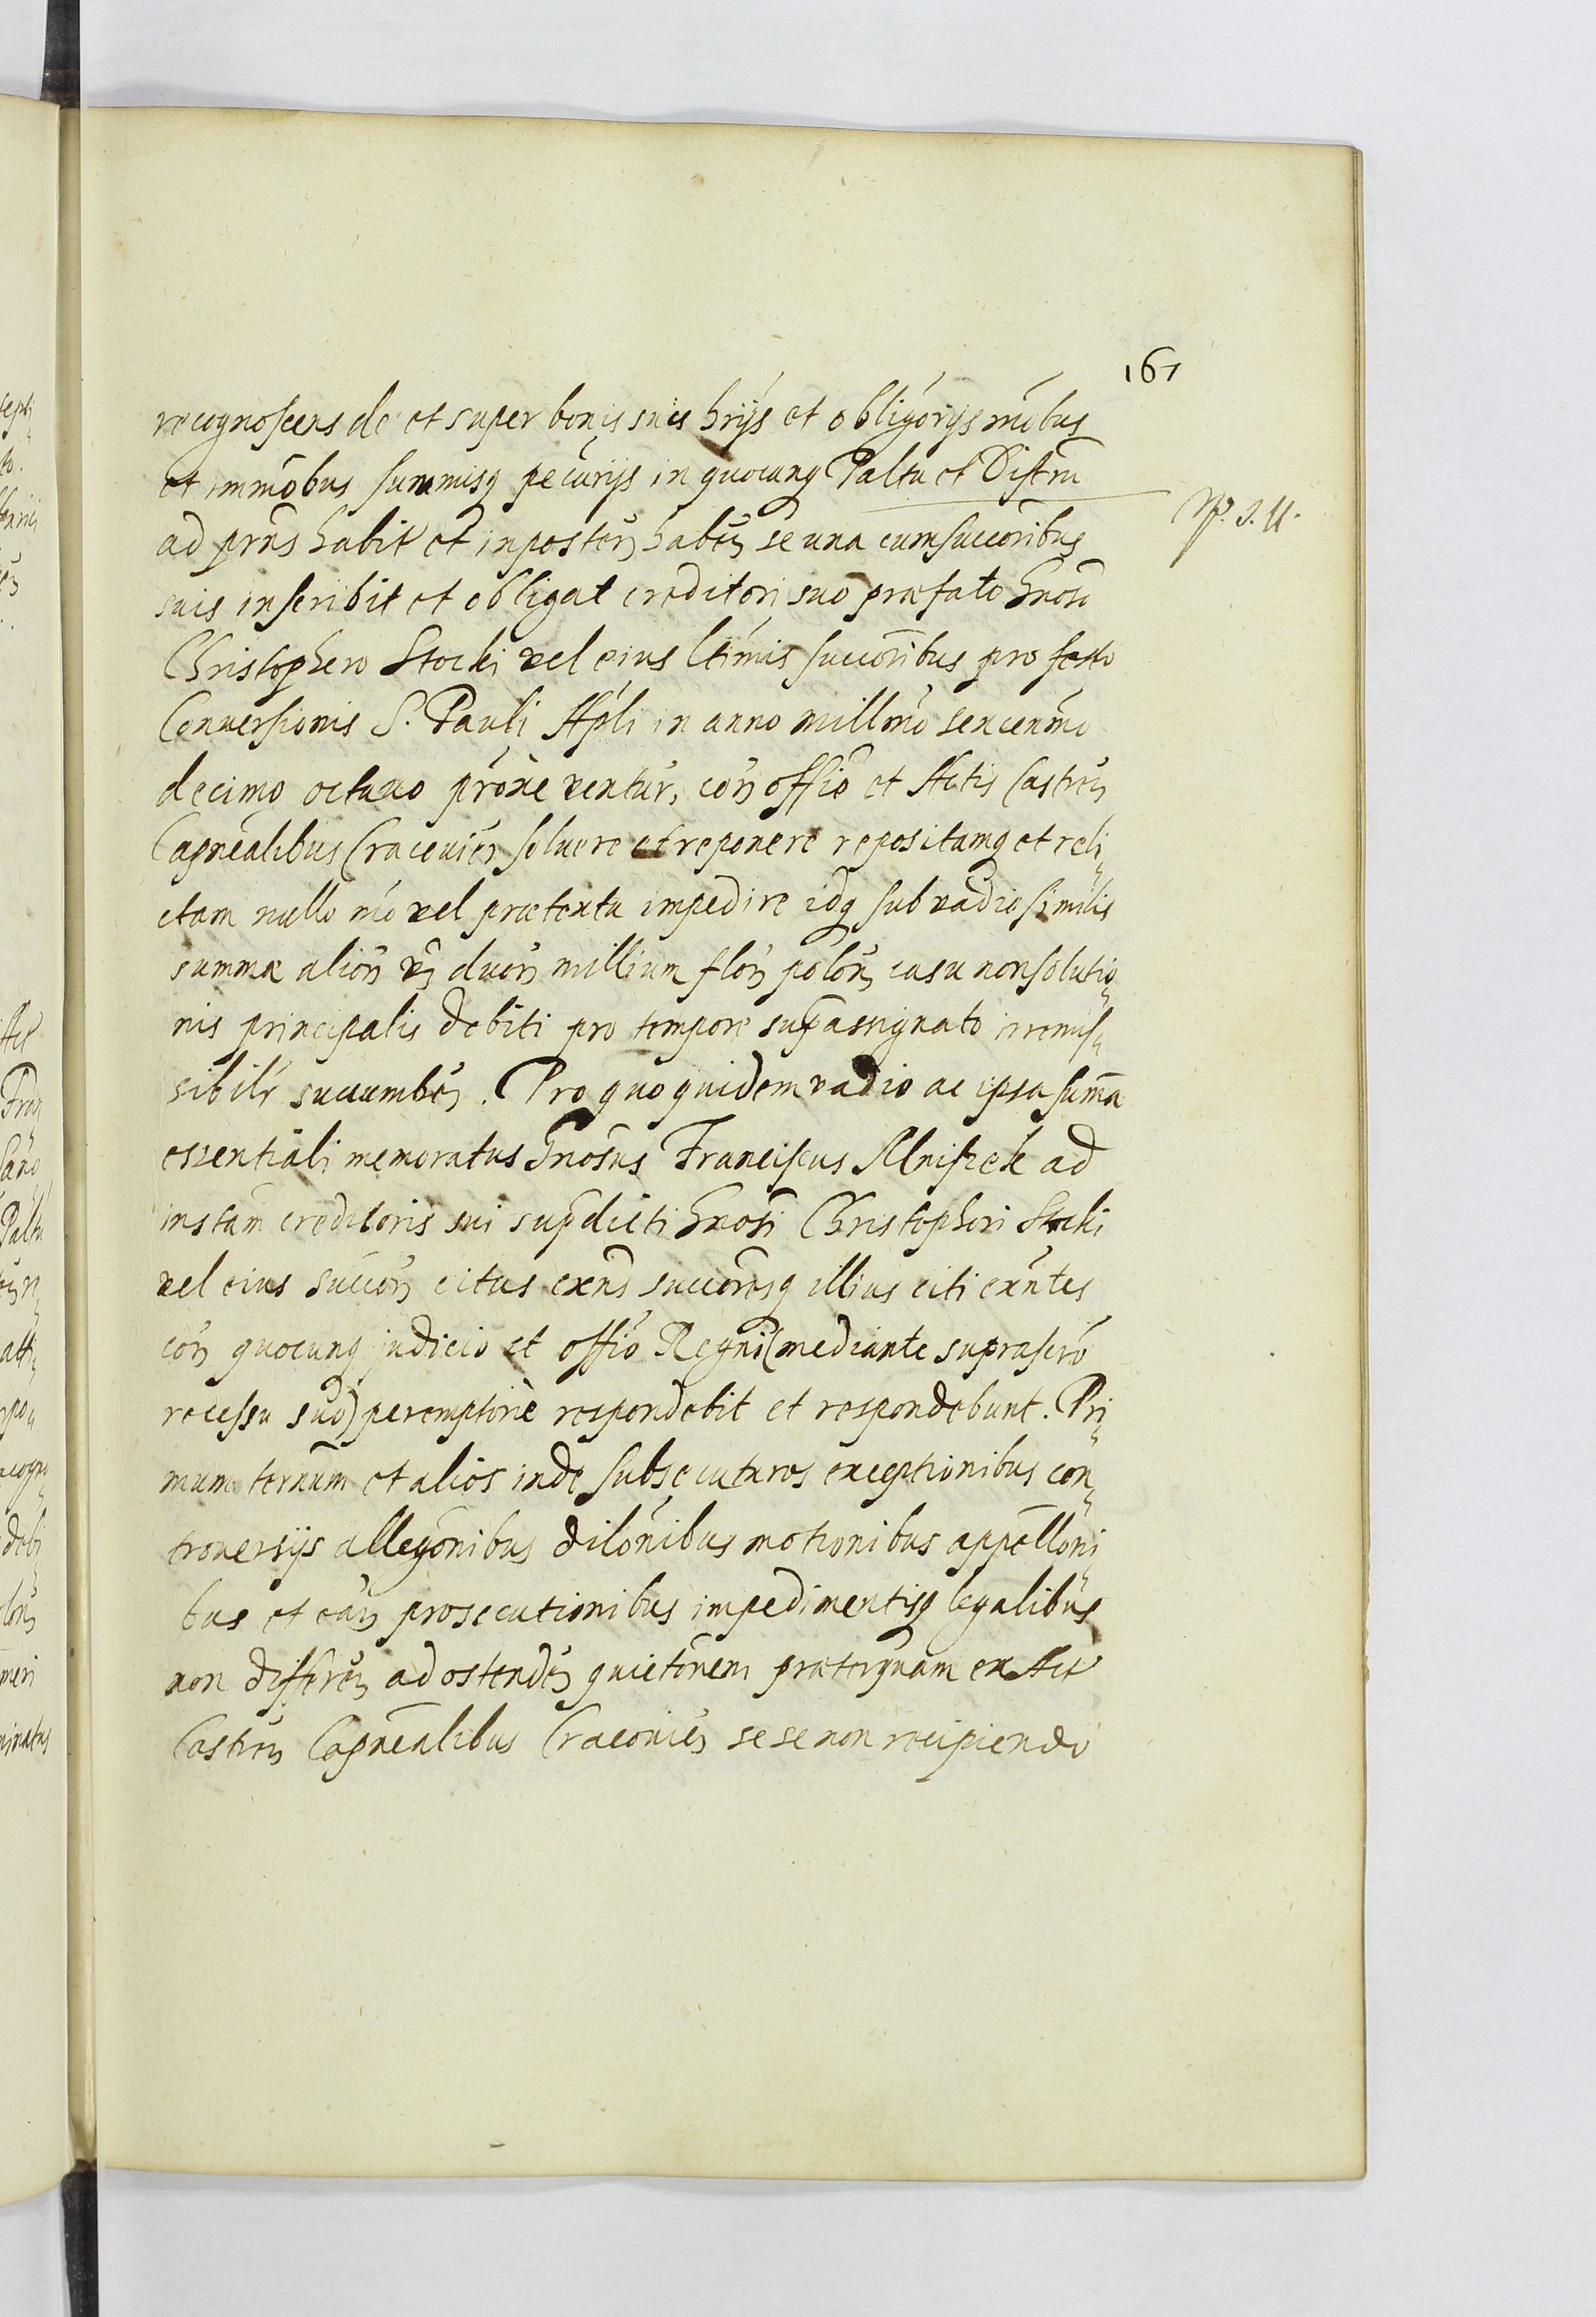 161
recognoscens de et super bonis suis hrijs et obligorijs mobus
et immobus summisq pecurijs in quocunq Paltu et Distru
ad prns habit et inposter habeñ se una cum succoribus
suis inscribit et obligat creditori suo præfato Gnoso
Christophero Stocki vel eius ltimis succoribus pro festo
Conversionis S. Pauli Apli in anno millmo sexcenmo
decimo octavo proxe ventur, cor offio et Actis Castreñ
Capnealibus Cracovieñ solvere et reponere repositamq et reli„
ctam nullo mo vel prætextu impedire idq sub vadio similis
summæ alior duor millium flor polor casu non solutio„
nis principalis debiti pro tempore supassignato irremis„
sibilr succumbeñ. Pro quo quidem vadio ac ipsa summa
essentiali memoratus Gnosus Franciscus Mniszek ad
instam creditoris sui supdicti Gnosi Christophori Stocki
vel eius succor citus exns succoresq illius citi exntes
cor quocunq judicio et offio Regni (mediante suprascro
recessu suo) peremptoriè respondebit et respondebunt. Pri„
mum ternum et alios inde subsecuturos exceptionibus con„
troversijs allegonibus dilonibus motionibus appelloni„
bus et ear prosecutionibus impedimentisq legalibus
non differeñ ad ostendeñ quietonem præterquam ex Act
Castreñ Capnealibus Cracovieñ sese non recipiendo